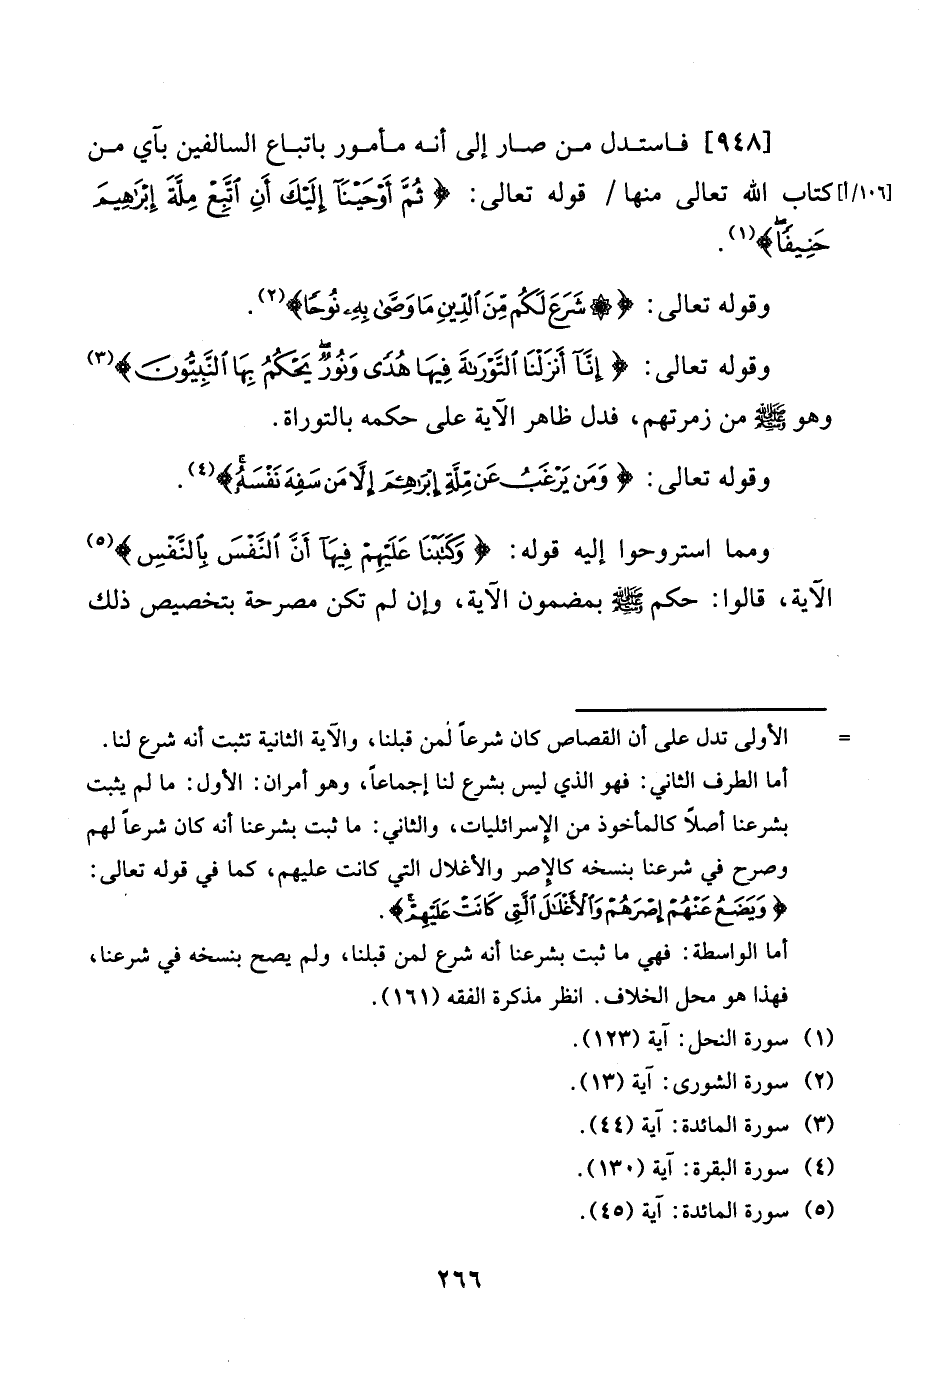 [٩٤٨] فـاستـدل مـن صـار إلى أنـه مـأمـور باتبـاع السالفين بـآي مـن
[١٠٦/أ] كتاب الله تعالى منها/ قوله تعالى: ﴿ ثُمَّ أَوْحَيْنَآ إِلَيْكَ أَنِ ٱتَّبِعْ مِلَّةَ إِبْرَٰهِيمَ
حَنِيفًا ۖ ﴾(١).
وقوله تعالى: ﴿ ۞ شَرَعَ لَكُم مِّنَ ٱلدِّينِ مَا وَصَّىٰ بِهِۦ نُوحًا ﴾(٢).
وقوله تعالى: ﴿ إِنَّآ أَنزَلْنَا ٱلتَّوْرَىٰةَ فِيهَا هُدًى وَنُورٌ ۚ يَحْكُمُ بِهَا ٱلنَّبِيُّونَ ﴾(٣)
وهو ﷺ من زمرتهم، فدل ظاهر الآية على حكمه بالتوراة.
وقوله تعالى: ﴿ وَمَن يَرْغَبُ عَن مِّلَّةِ إِبْرَٰهِۦمَ إِلَّا مَن سَفِهَ نَفْسَهُۥ ۚ ﴾(٤).
ومما استروحوا إليه قوله: ﴿ وَكَتَبْنَا عَلَيْهِمْ فِيهَآ أَنَّ ٱلنَّفْسَ بِٱلنَّفْسِ ﴾(٥)
الآية، قالوا: حكم ﷺ بمضمون الآية، وإن لم تكن مصرحة بتخصيص ذلك
= الأولى تدل على أن القصاص كان شرعاً لمن قبلنا، والآية الثانية تثبت أنه شرع لنا.
أما الطرف الثاني: فهو الذي ليس بشرع لنا إجماعاً، وهو أمران: الأول: ما لم يثبت
بشرعنا أصلاً كالمأخوذ من الإسرائليات، والثاني: ما ثبت بشرعنا أنه كان شرعاً لهم
وصرح في شرعنا بنسخه كالإصر والأغلال التي كانت عليهم، كما في قوله تعالى:
﴿ وَيَضَعُ عَنْهُمْ إِصْرَهُمْ وَٱلْأَغْلَٰلَ ٱلَّتِى كَانَتْ عَلَيْهِمْ ۚ ﴾.
أما الواسطة: فهي ما ثبت بشرعنا أنه شرع لمن قبلنا، ولم يصح بنسخه في شرعنا،
فهذا هو محل الخلاف. انظر مذكرة الفقه (١٦١).
(١) سورة النحل: آية (١٢٣).
(٢) سورة الشورى: آية (١٣).
(٣) سورة المائدة: آية (٤٤).
(٤) سورة البقرة: آية (١٣٠).
(٥) سورة المائدة: آية (٤٥).
٢٦٦